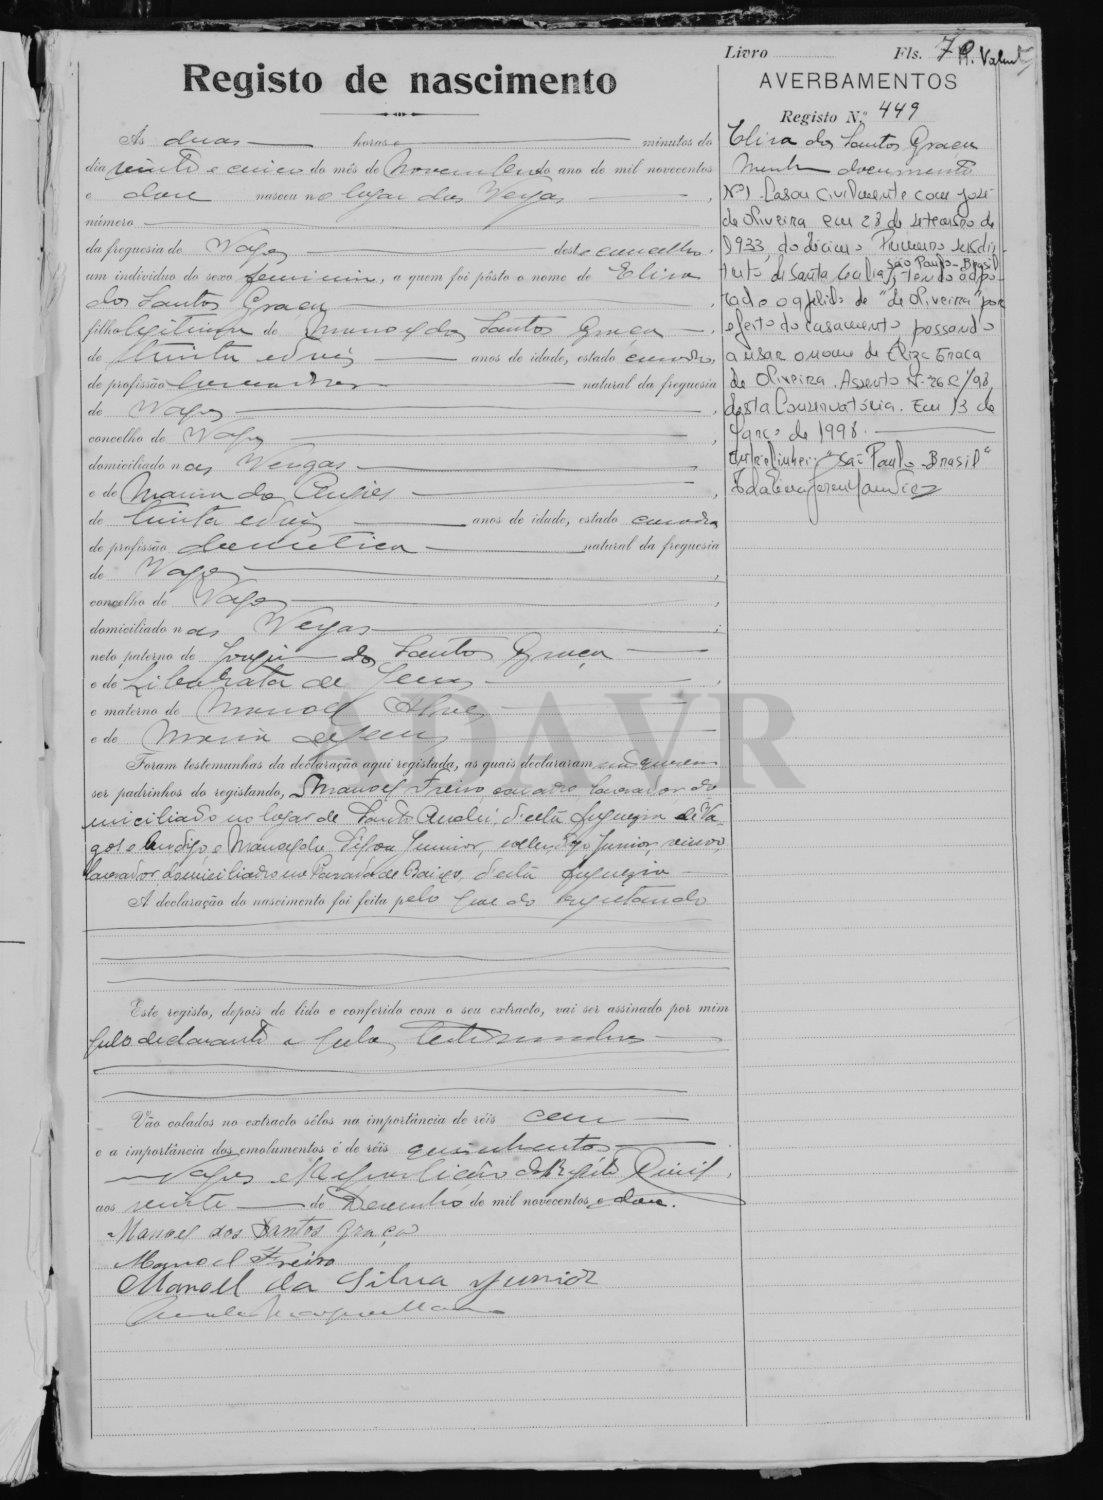 Livro Fls. 7 R. Valente
Registo de nascimento
AVERBAMENTOS
Registo N.º 449
Às duas horas e minutos do
dia vinte e cinco do mês de Novembro do ano de mil novecentos
e doze nasceu no lugar das Vergas,
número
da freguesia de Vagos deste concelho,
um indivíduo do sexo feminino, a quem foi pôsto o nome de Elisa
dos Santos Graça
filha legitima de Manoel dos Santos Graça,
de trinta e anos de idade, estado casado,
de profissão lavrador natural da freguesia
de Vagos,
concelho de Vagos,
domiciliado nas Vergas
e de Maria de,
de trinta e anos de idade, estado casada
de profissão domestica natural da freguesia
de Vagos,
concelho de Vagos,
domiciliado nas Vergas;
neto paterno de dos Santos Graça
e de Liberata de Jesus,
e materno de Manoel
e de Maria de Jesus
Foram testemunhas da declaração aqui registada, as quais declararam
ser padrinhos do registando, Manoel Freire, casado, lavrador, do
miciliado no lugar de Santo André, d'esta freguezia de Va
gos e Manoel da Silva Junior, viuvo,
lavrador, domiciliado na de Baixo, d'esta freguezia
A declaração do nascimento foi feita pelo pae do registando
Este registo, depois de lido e conferido com o seu extracto, vai ser assinado por mim
pelo declarante e pelas testemunhas
Vão colados no extracto sêlos na importância de réis cem
e a importância dos emolumentos é de réis quinhentos,
Vagos e Repartição do Registo Civil,
aos vinte de Dezembro de mil novecentos e doze.
Manoel dos Santos Graça
Manoel Freire
Manoel da Silva Junior
Elisa dos Santos Graça
documento
Nº1 Casou civilmente com José
de Oliveira em 28 de setembro de
1933, do décimo Primeiro subdis-
São Paulo-Brasil
trito de Santa Cecilia, tendo adop-
tado o apelido de "de Oliveira" por
efeito do casamento passando
a usar o nome de Eliza Graça
de Oliveira. Assento Nº 262/98,
desta Conservatória. Em 13 de
Março de 1998.
Entrelinhei: "São Paulo-Brasil"
ADAVR